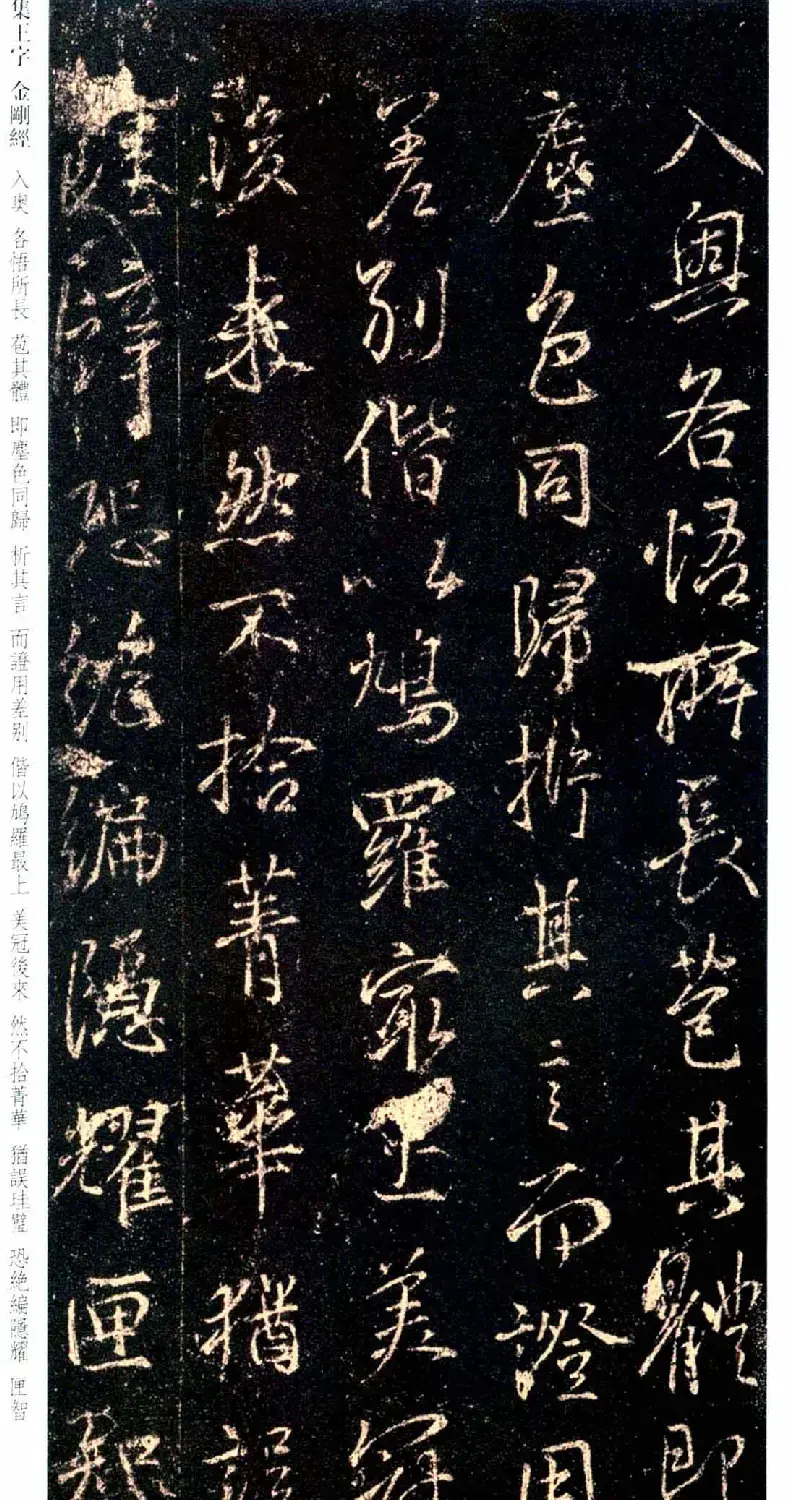 入奧各悟所長苞其體即
塵色同歸析其言而證用
差別偕以鳩羅最上美冠
後來然不捨菁華猶誤
恐絕編隱耀匣
集王字 金剛經 入奧 各悟所長 苞其體 即塵色同歸 析其言 而證用差別 偕以鳩羅最上 美冠後來 然不拾菁華 猶誤珪璧 恐絕編隱耀 匣智